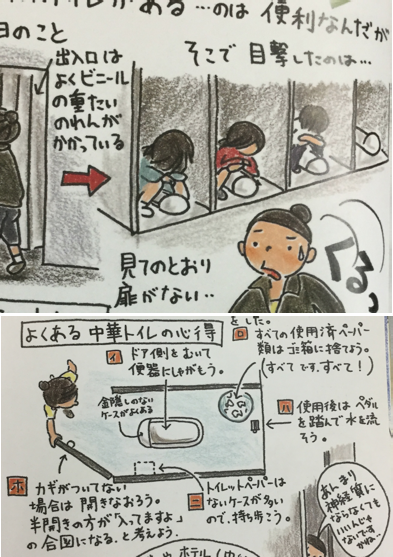 がある…のは 便利なんだが
日のこと
そこで 目撃したのは…
出入口は
よくビニール
の重たい
のれんが
かかっている
見てのとおり
扉がない‥
くるっ
よくある 中華トイレの心得
をした。
ロ すべての使用済ペーパー
類はゴミ箱に捨てよう。
(すべてです、すべて!)
イ ドア側をむいて
便器にしゃがもう。
金隠しのない
ケースがよくある
ハ 使用後はペダル
を踏んで水を流
そう。
ホ カギがついてない
場合は 開きなおろう。
半開きの方が「入ってますよ」
の合図になる、と考えよう。
ニ トイレットペーパーは
ないケースが多い
ので、持ち歩こう。
あんまり
神経質に
ならなくても
いいんじゃ
ないです
かね…